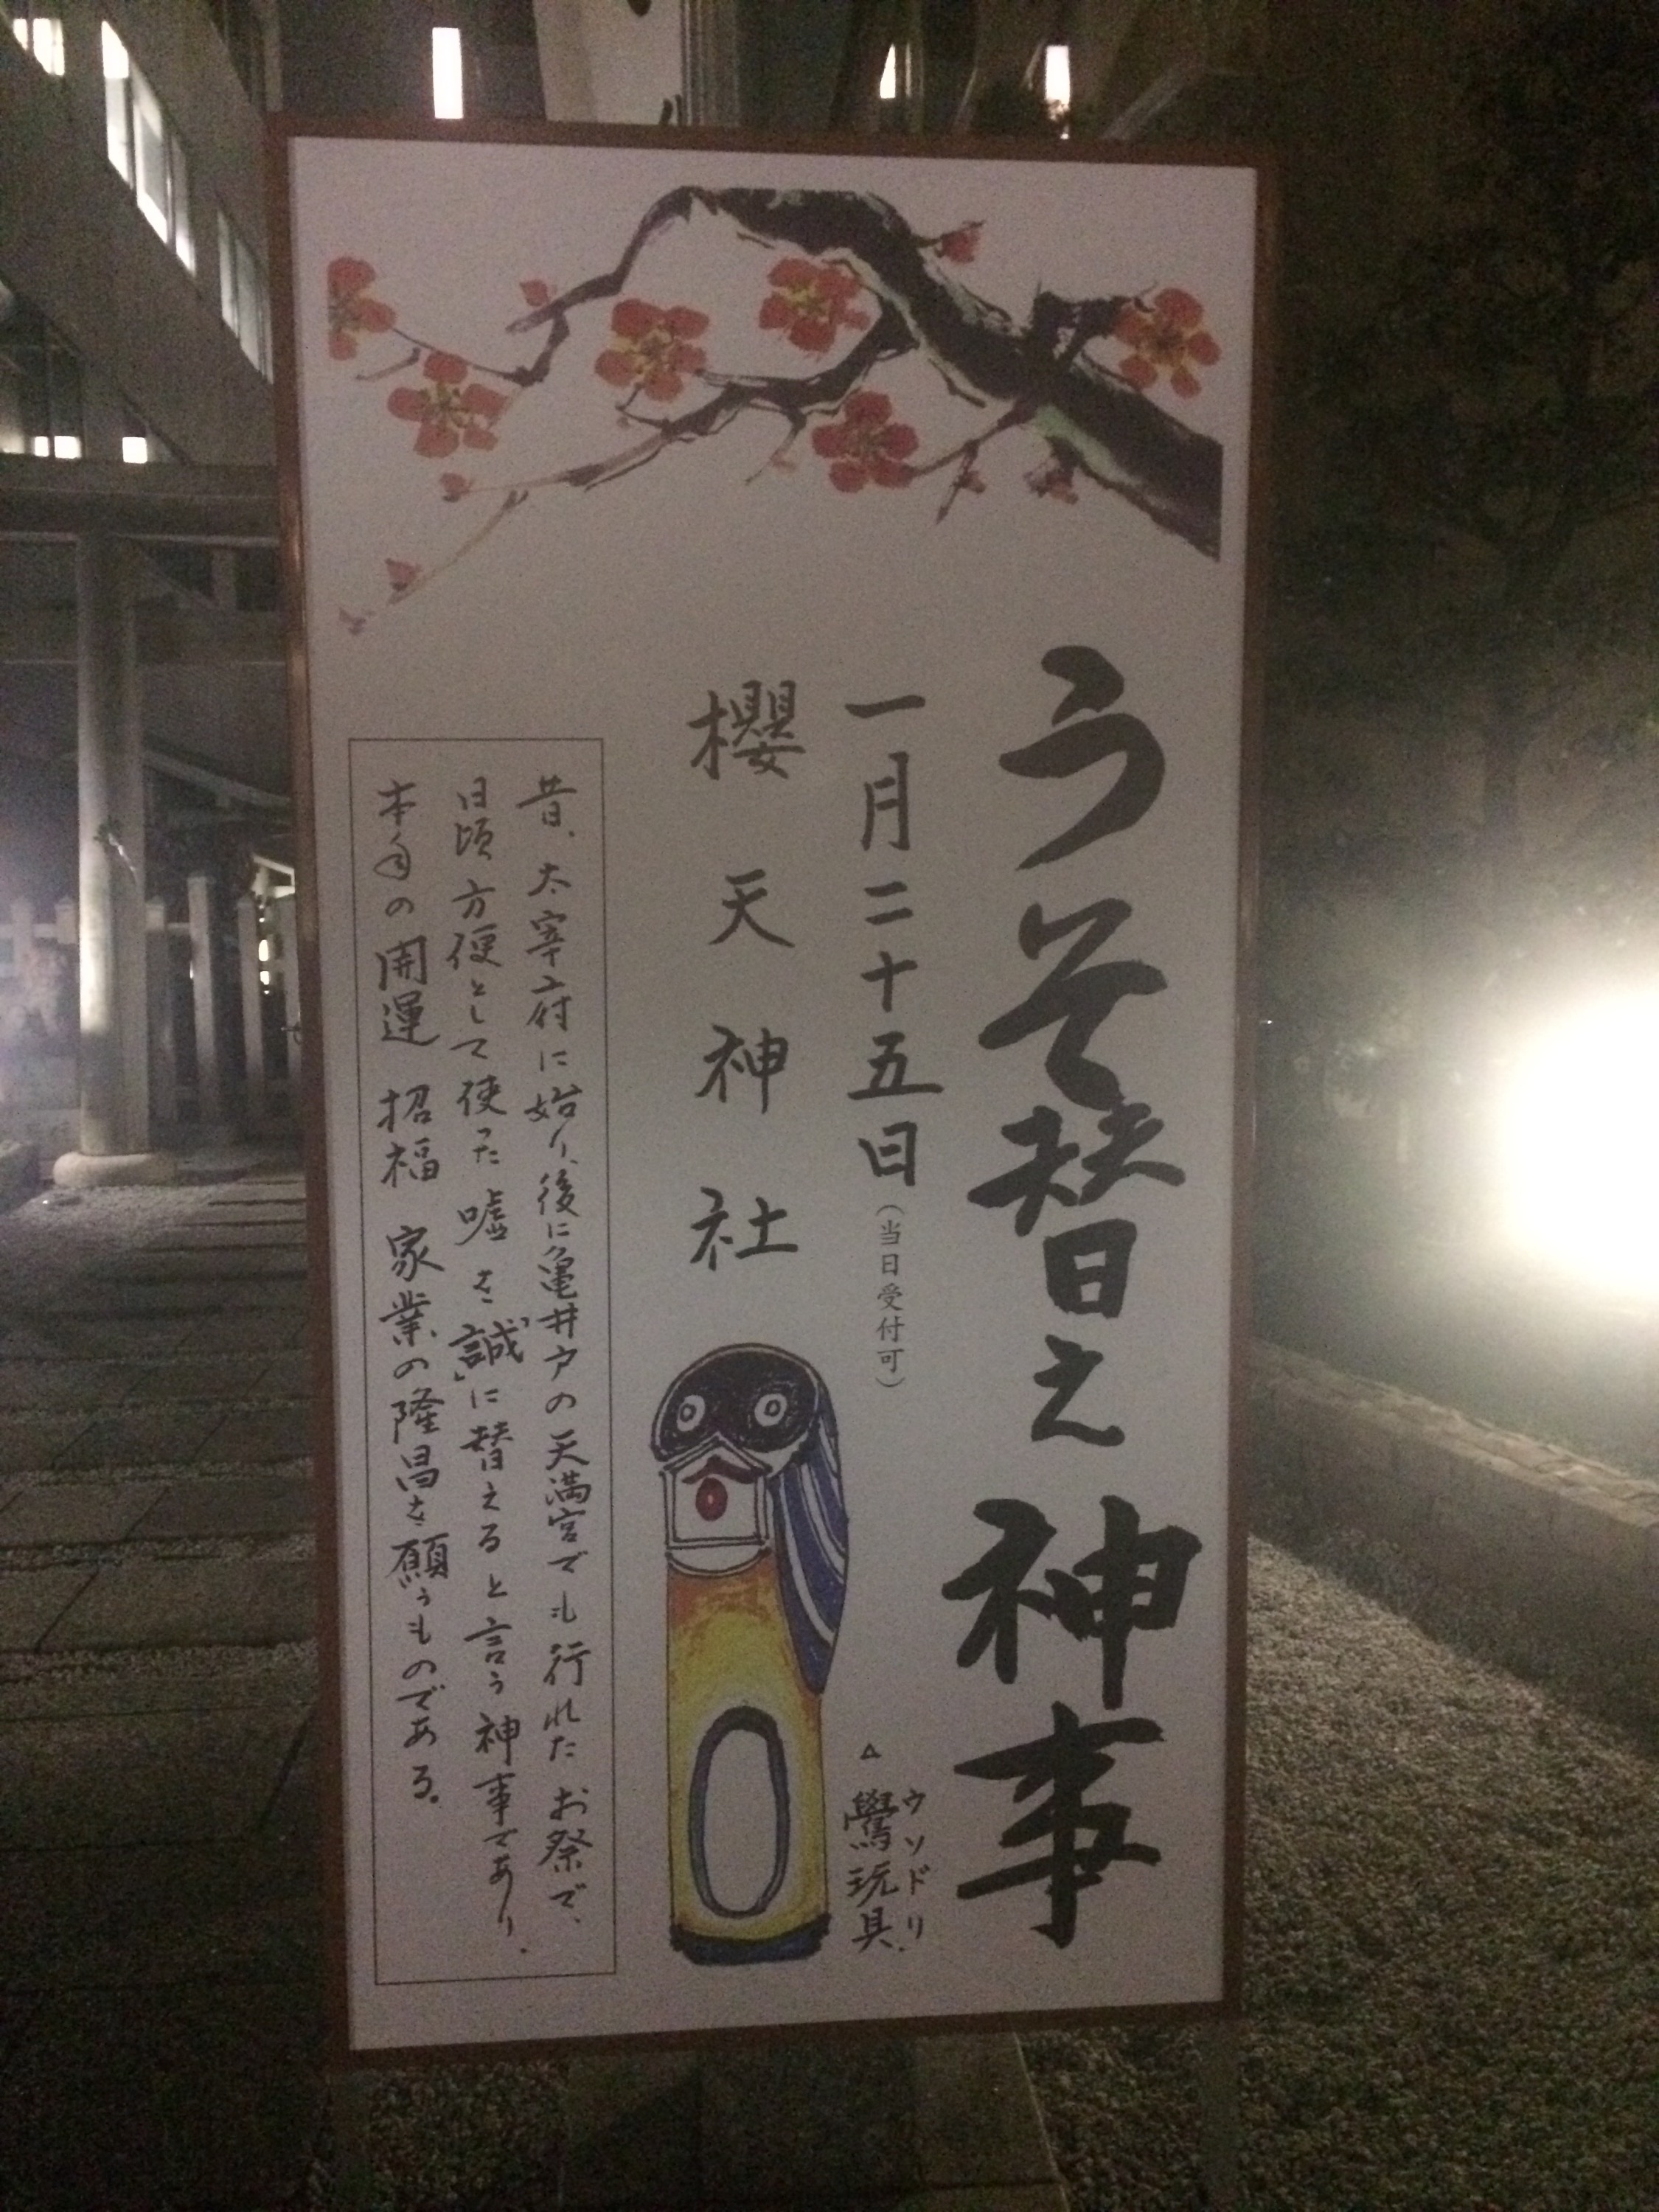 うそ替え神事
一月二十五日（当日受付可）
櫻天神社
ウソドリ
△鷽玩具
昔、太宰府に始り、後に亀井戸の天満宮でも行れたお祭で、
日頃方便として使った嘘を「誠」に替えると言う神事であり、
本年の開運 招福 家業の隆昌を願うものである。